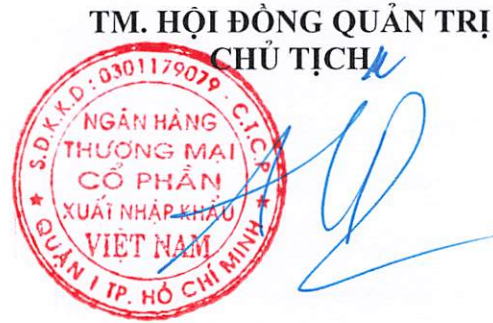 TM. HỘI ĐỒNG QUẢN TRỊ
CHỦ TỊCH
S.D.K.K.D: 0301179079 - C.T.C.P
NGÂN HÀNG
THƯƠNG MẠI
CỔ PHẦN
XUẤT NHẬP KHẨU
VIỆT NAM
QUẬN I TP. HỒ CHÍ MINH